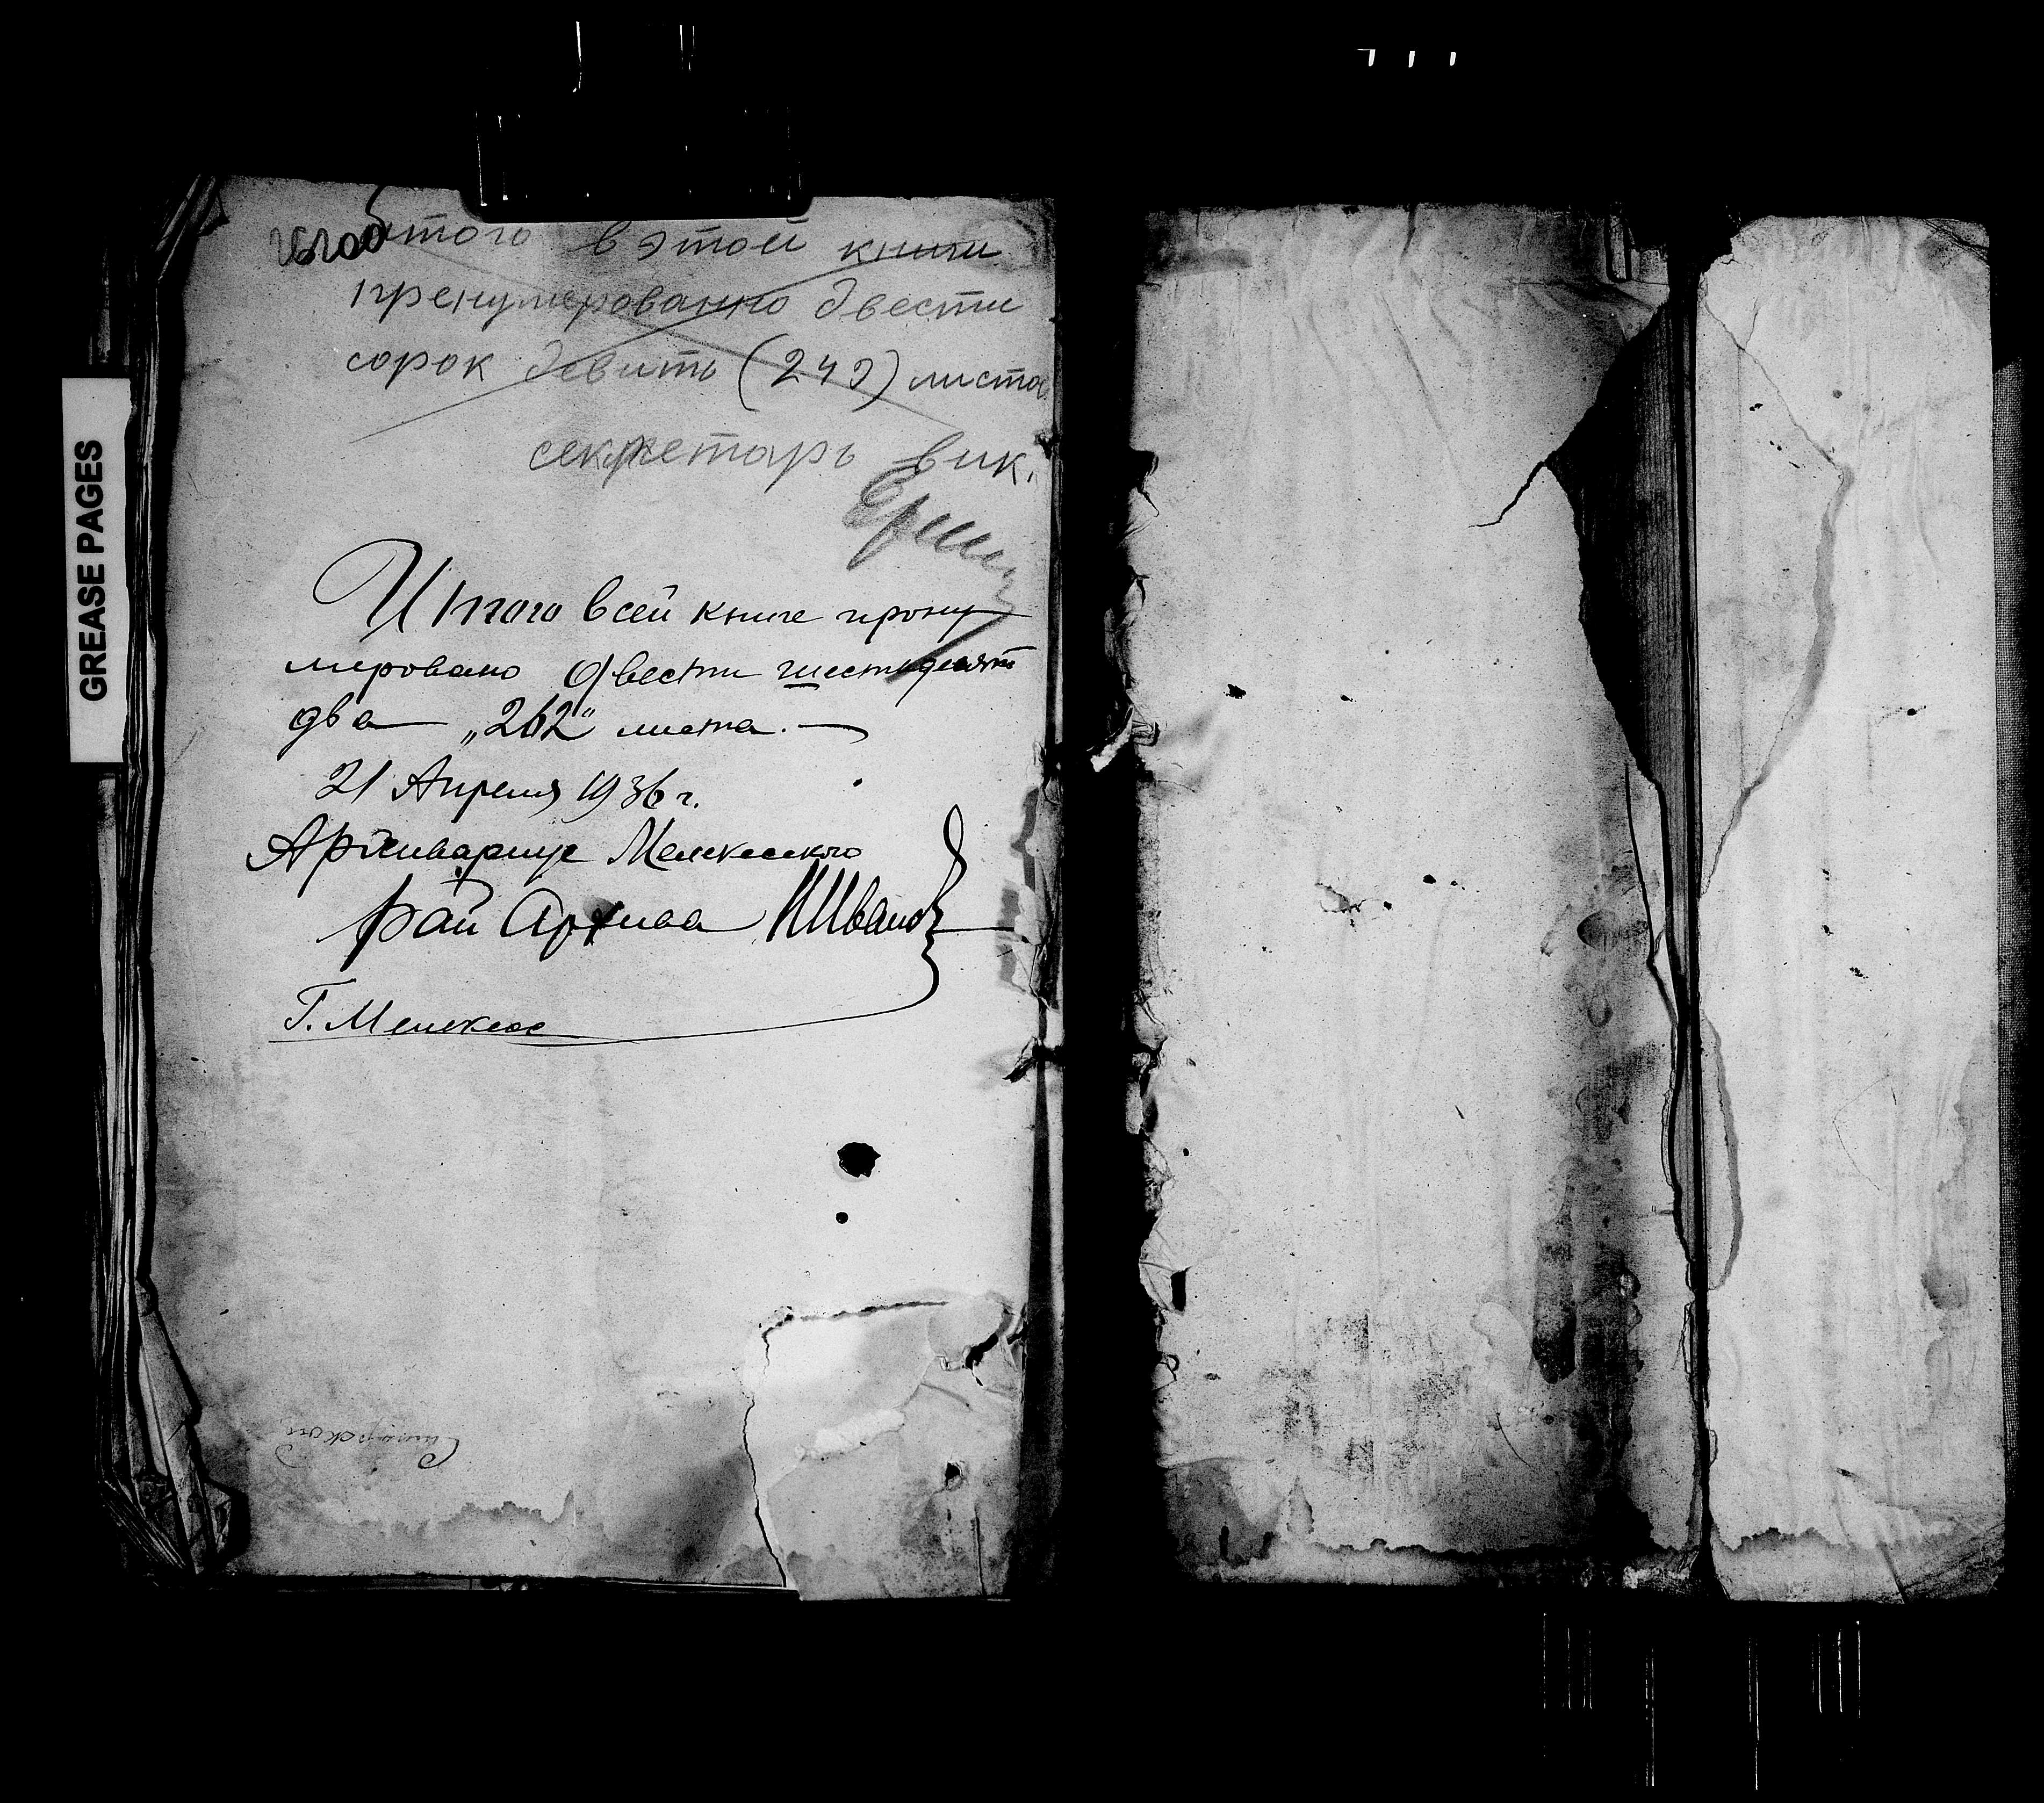 итого в этой книги
пренумерованно двести
сорок девить (249) листа
секретарь вик.
Итого всей книге прону
меровано двести шестьдесят
два „262" листа. —
21 Апреля 1936 г.
Архивариус Мелекесского
рай Архива НИванов
Г. Мелекесс
Самарской
GREASE PAGES